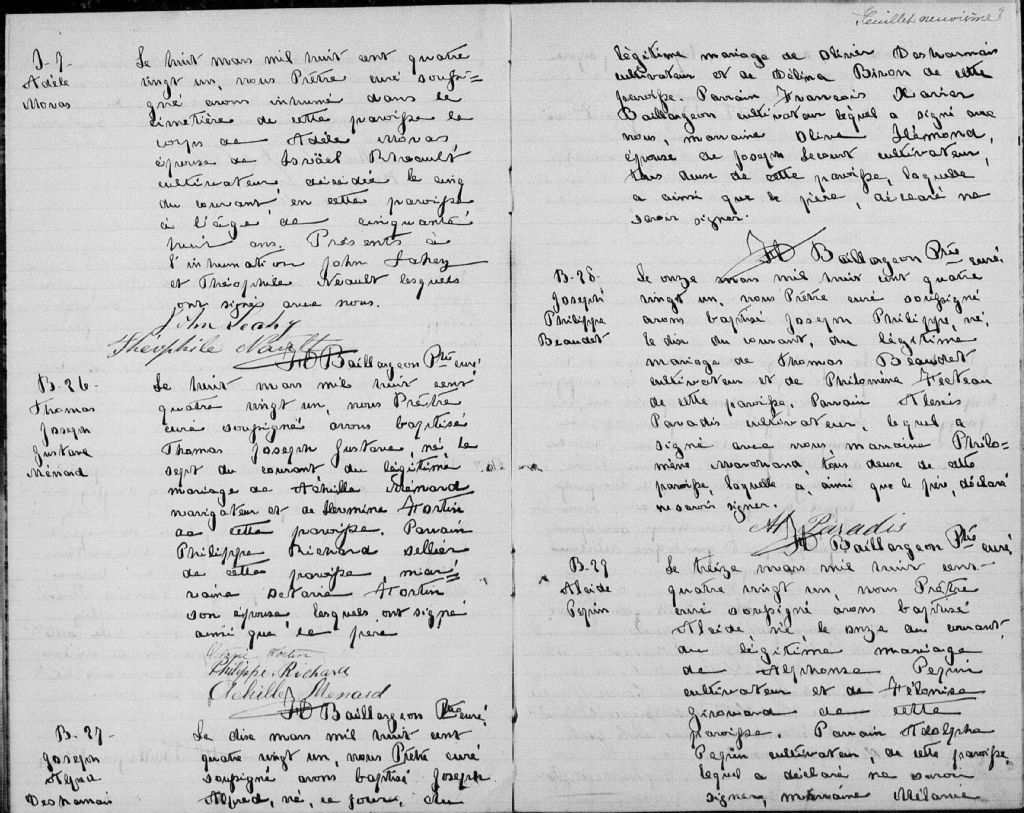 S-7-
Adèle
Moras
Le huit mars mil huit cent quatre
vingt un, nous Prêtre curé soussi=
gné avons inhumé dans le
cimetière de cette paroisse le
corps de Adèle Moras
épouse de Israël Rheault
cultivateur, décédée le cinq
du courant en cette paroisse
à l'âge de cinquante
huit ans. Présents à
l'inhumation John Lahey
et Théophile Neault lesquels
ont signé avec nous.
John Leahy
Théophile Nault
Baillargeon Ptre curé
B-26-
Thomas
Joseph
Gustave
Ménard
Le huit mars mil huit cent
quatre vingt un, nous Prêtre
curé soussigné avons baptisé
Thomas Joseph Gustave, né le
sept du courant du légitime
mariage de Achille Ménard
navigateur et de Hermine Fortin
de cette paroisse. Parrain
Philippe Richard sellier
de cette paroisse mar=
raine Fortin
son épouse lesquels ont signé
ainsi que le père
Fortin
Philippe Richard
Achille Menard
Baillargeon Ptre curé
B-27-
Joseph
Alfred
Desharnais
Le dix mars mil huit cent
quatre vingt un, nous Prêtre curé
soussigné avons baptisé Joseph
Alfred, né, ce jour, du
Feuillet neuvième 9
légitime mariage de Olivier Desharnais
cultivateur et de Délina Biron de cette
paroisse. Parrain François Xavier
Baillargeon cultivateur lequel a signé avec
nous, marraine Olive Hémond,
épouse de Joseph Lecourt cultivateur,
tous deux de cette paroisse, laquelle
a ainsi que le père, déclaré ne
savoir signer.
Baillargeon Ptre curé
B-28-
Joseph
Philippe
Beaudet
Le onze mars mil huit cent quatre
vingt un, nous Prêtre curé soussigné
avons baptisé Joseph Philippe, né,
le dix du courant, du légitime
mariage de Thomas Beaudet
cultivateur et de Philomène Fecteau
de cette paroisse. Parrain Alexis
Paradis cultivateur, lequel a
signé avec nous marraine Philo=
mène Marchand, tous deux de cette
paroisse, laquelle a, ainsi que le père, déclaré
ne savoir signer.
Paradis
Baillargeon Ptre curé
B-29
Alcide
Pepin
Le treize mars mil huit cent
quatre vingt un, nous Prêtre
curé soussigné avons baptisé
Alcide, né, le onze du courant,
du légitime mariage
de Alphonse Pepin
cultivateur et de Félonise
Girouard de cette
paroisse. Parrain Adolphe
Pepin cultivateur, de cette paroisse,
lequel a déclaré ne savoir
signer, marraine Mélanie